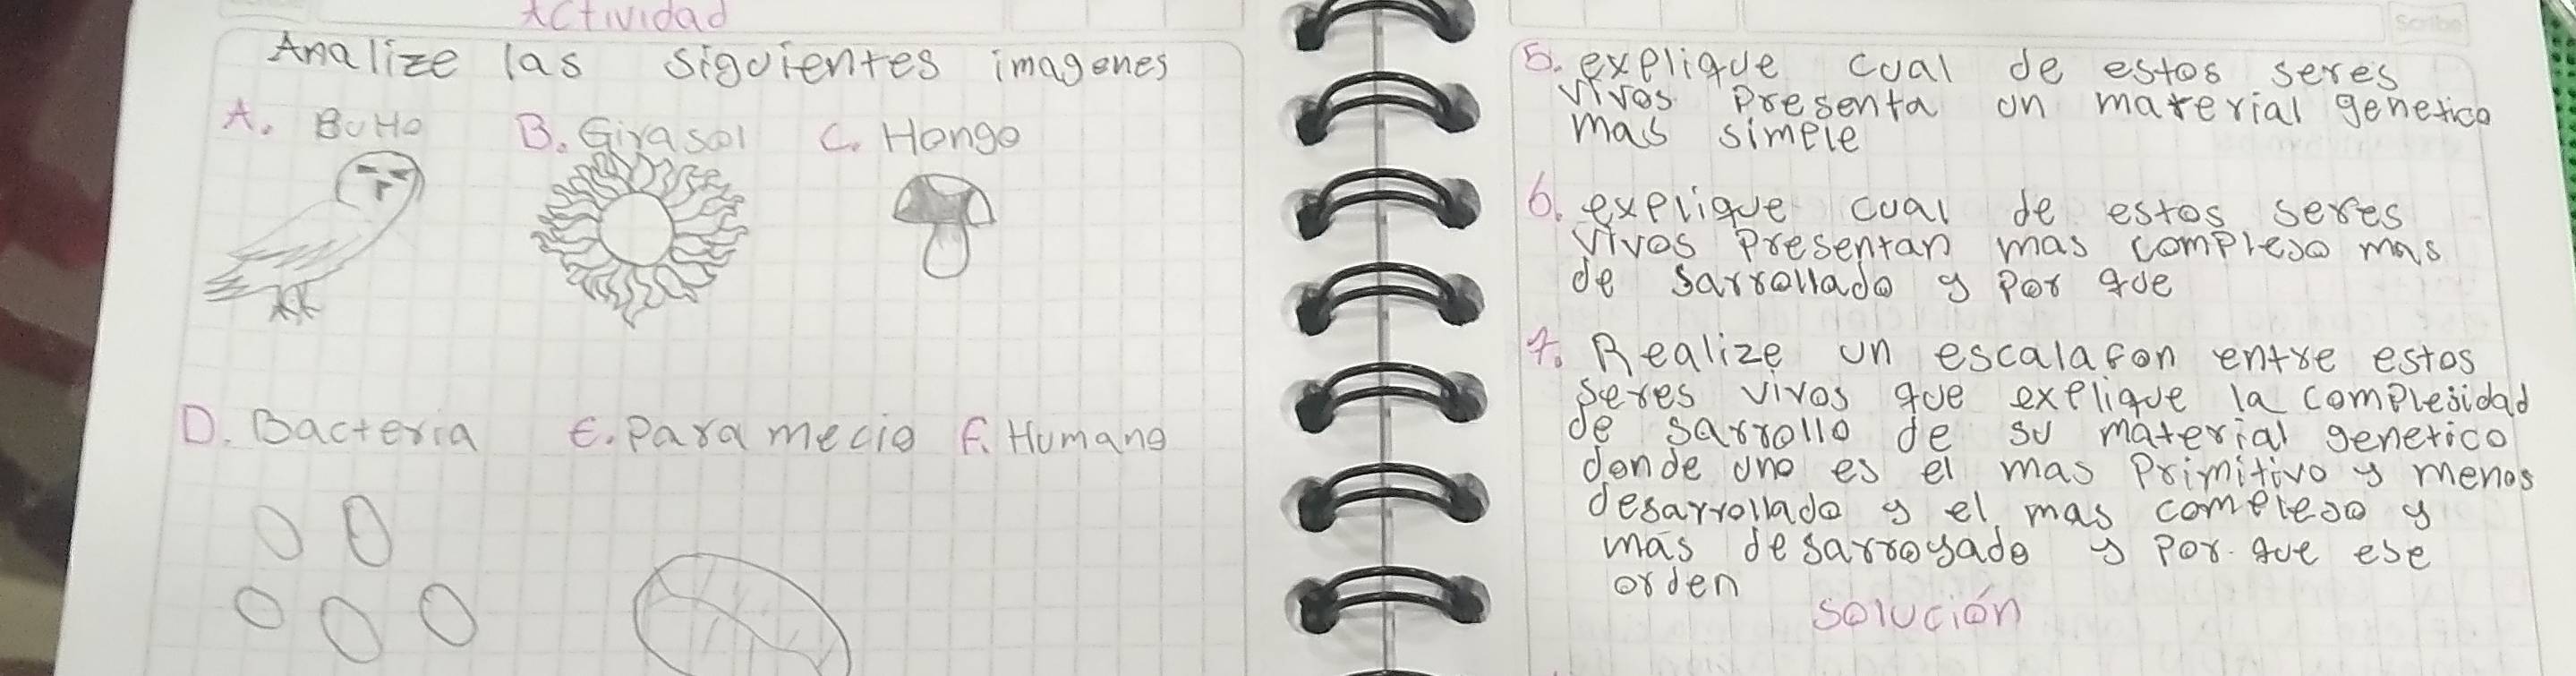 Actividad
Analize las siguientes imagenes
A. BuHo B. Girasol C. Hongo
D. Bacteria E. Paramecio F. Humano
Scribe
5. explique cual de estos seres
vivos presenta un material genetico
mas simple
6. explique cual de estos seres
vivos Presentan mas complejo mas
de sarrollado y por que
7. Realize un escalafon entre estos
seres vivos que explique la complejidad
de sarrollo de su material genetico
donde uno es el mas Primitivo y menos
desarrollado y el mas complejo y
más desarroyado y por que ese
orden
solución